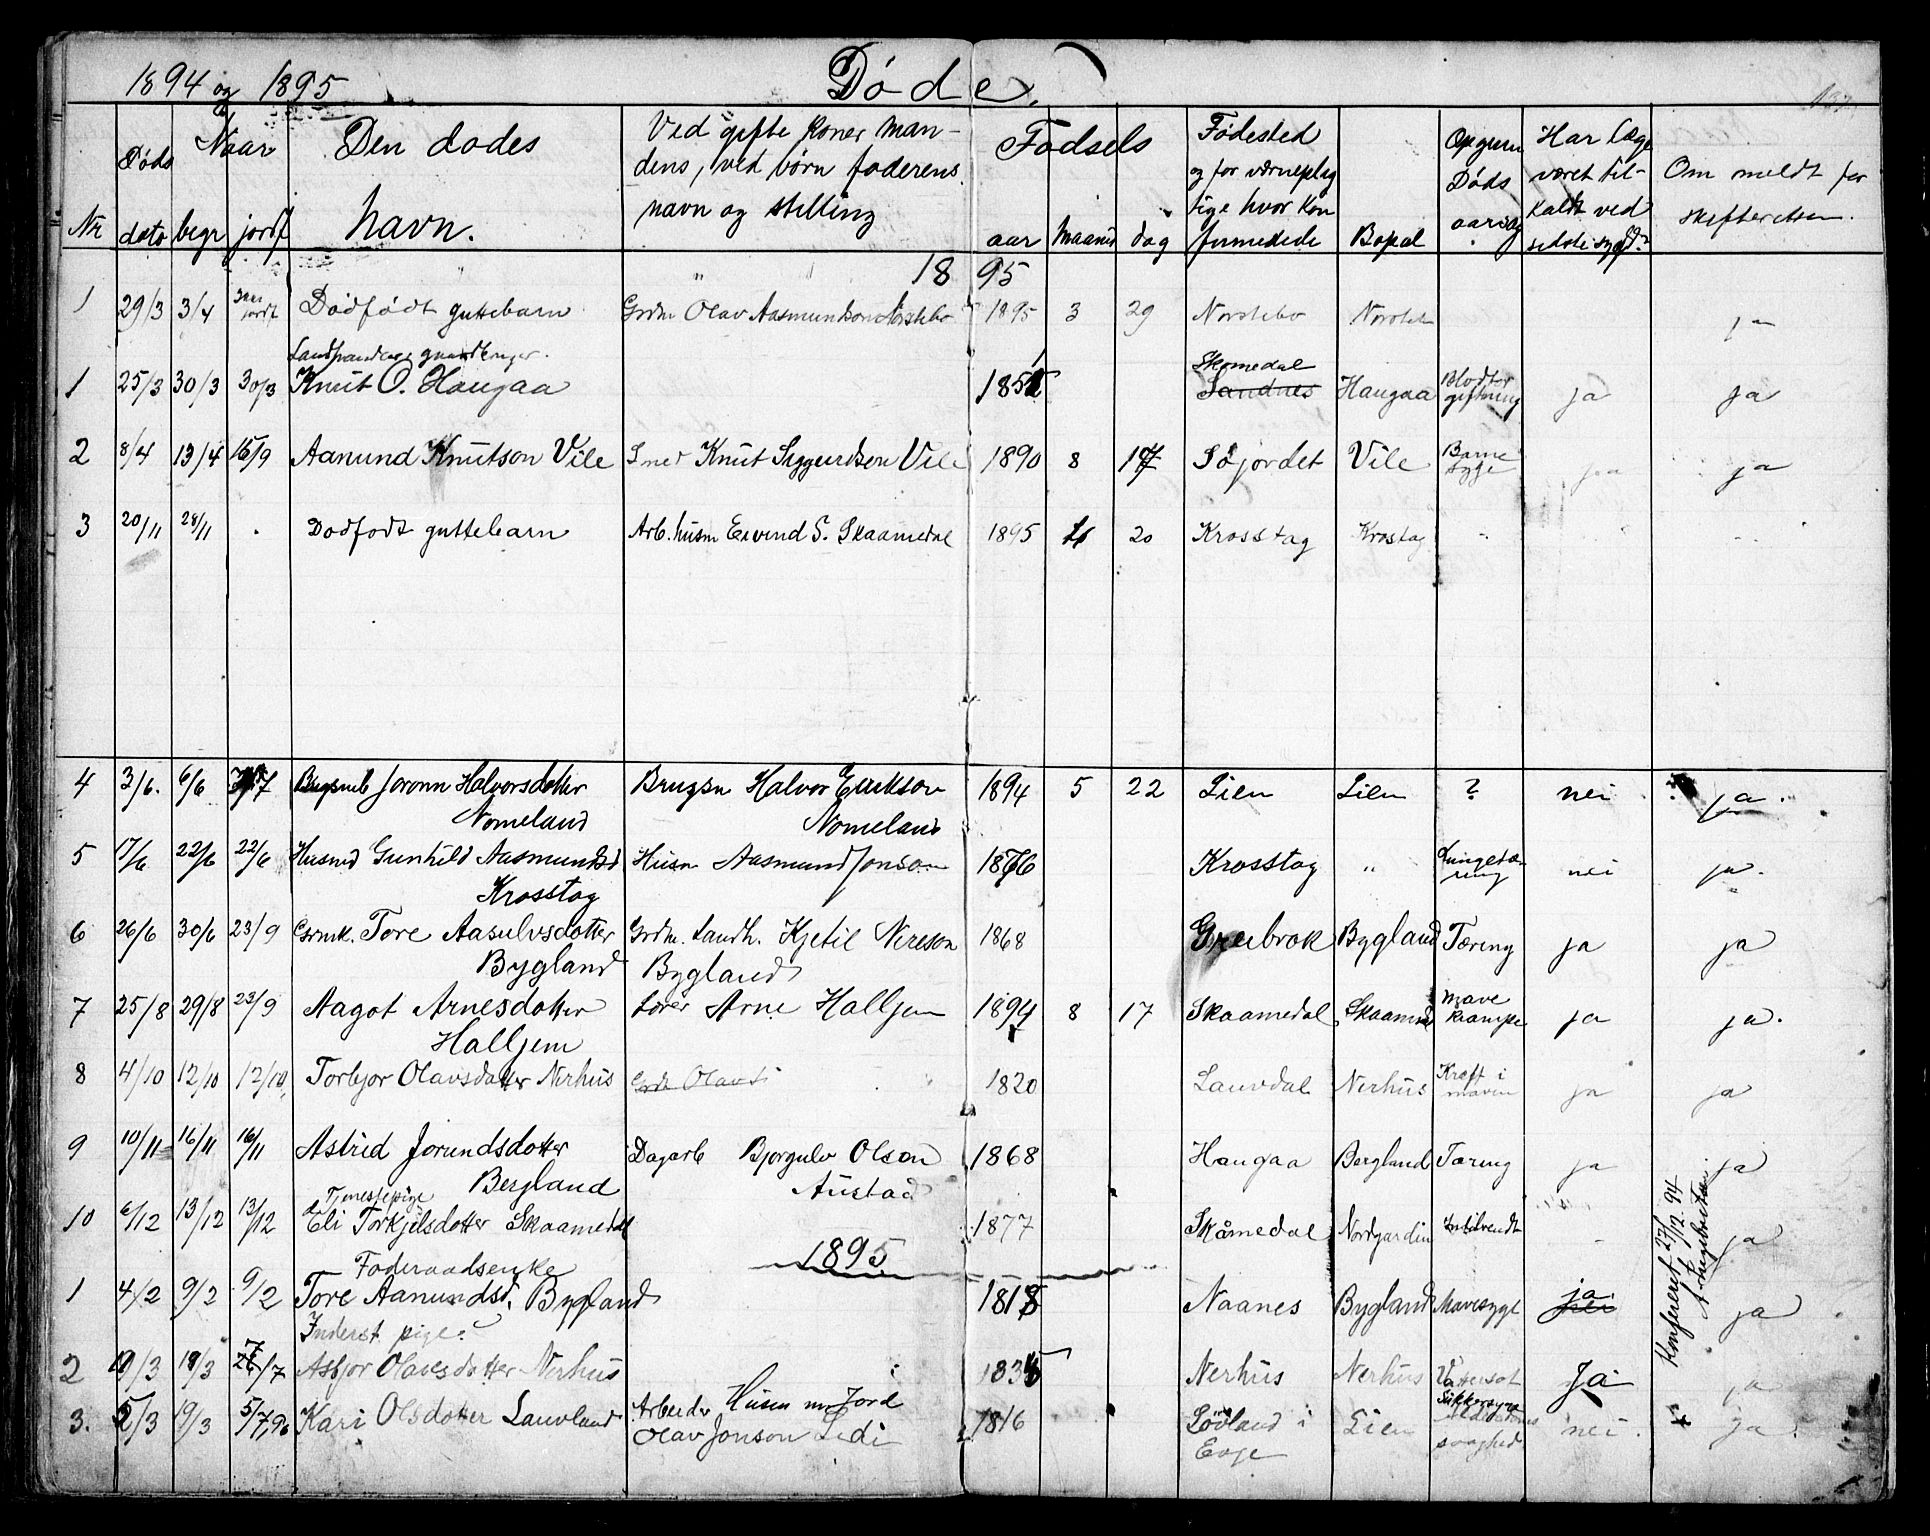 1894 og 1895 Døde. 137
Nr Døds dato Naar begr jordf Den dødes navn. Ved gifte koner man-
dens, ved børn faderens
navn og stilling Fødsels aar maaned dag Fødested
og for værneplig
tige hvor kon
firmerede Bopæl Opgiven
Døds
aarsag Har læge
været til-
kaldt ved
sidste sygd? Om meldt for
skifteretten.
" " 1895
1 29/3 3/4 Dødfødt guttebarn Grdm Olav Aasmundson Norstebø 1895 3 29 Norstebø ja
Landhandler gaardbruger.
1 25/3 30/3 30/3 Knut O. Haugaa 1851 Skomedal
Sandnes Haugaa Blodfor
giftning ja ja
2 8/4 13/4 15/9 Aanund Knutson Vile Smed Knut Siggurdson Vile 1890 8 17 Søjordet Vile Barne
syge ja ja
3 20/11 28/11 . Dødfødt guttebarn Arb. husm Eivind S. Skaamedal 1895 11 20 Krosstøg Krostøg "
4 3/6. 6/6 Joronn Halvorsdotter
Nomeland Brugsm Halvor Erikson
Nomeland 1894 5 22 Lien Lien ? nei ja.
5 17/6 22/6 22/6 Husmd Gunhild Aasmundsd
Krosstøg Husm Aasmund Jonson 1876 Krosstøg " Lungetæ-
ring nei ja.
6 26/6 30/6 23/9 Grmk. Tore Aasulvsdotter
Bygland Grdm. Landh. Kjetil Nereson
Bygland 1868 Greibrok Bygland Tæring ja ja
7 25/8 29/8 23/9 Aagot Arnesdotter
Halljem Lærer Arne Halljem 1894 8 17 Skaamedal Skaamedal Mave
krampe ja ja.
8 4/10 12/10 12/10, Torbjor Olavsdatter Nerhus Grdm Olav 1820 Lauvdal Nerhus Kreft i
maven ja ja
9 10/11 16/11 16/11 Astrid Jorundsdotter
Bergland Dagarb Bjorgulv Olson
Austad 1868 Haugaa Bergland Tæring ja ja
Tjenestepige
10 6/12 13/12 13/12 Eli Torkjelsdotter Skaamedal 1877 Skåmedal Nordgarden ja
Konfereret 27/12. 94
1895
Føderaadsenke
1 4/2 9/2 9/2 Tore Aanundsd. Bygland 1818 Naanes Bygland Mavesyge ja
nei ja
Inderst pige?
2 19/3 26/7 Asbjor Olavesdotter Nerhus 1835 Nerhus Nerhus Vattersot
Sukkersyge Ja ja
3. 5/3 19/3 5/7,96 Kari Olsdotter Lauvland Arbeider Husm m Jord
Olav Jonson Lidi 1816 Lødland i
Evje Lien alderdoms
svaghed nei. ja.